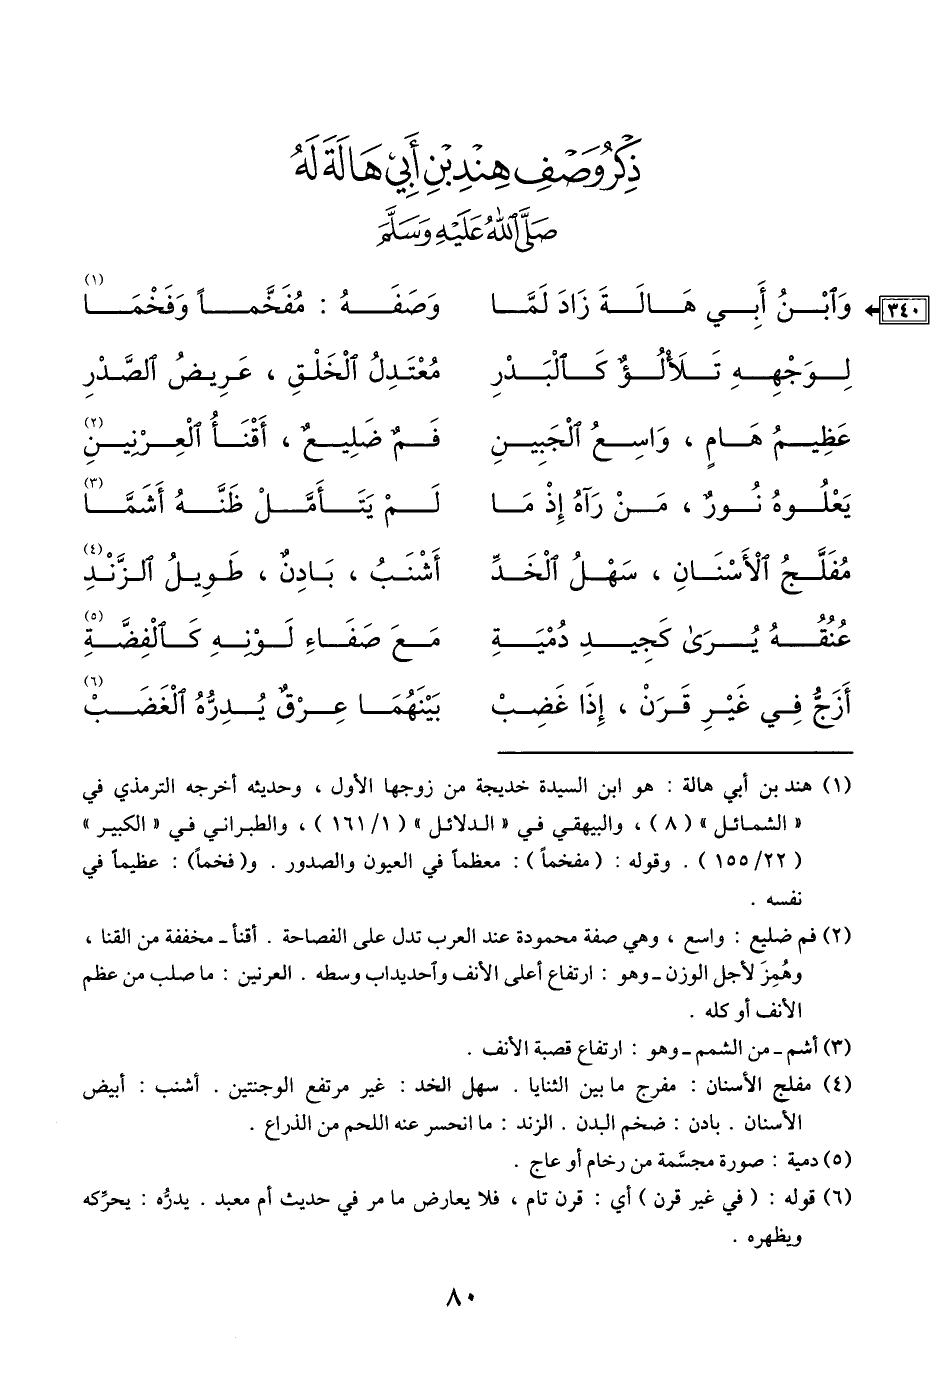 ذِكْرُ وَصْفِ هِنْدِ بْنِ أَبِي هَالَةَ لَهُ
صَلَّى ٱللَّهُ عَلَيْهِ وَسَلَّمَ
٣٤٠ وَٱبْنُ أَبِي هَالَةَ زَادَ لَمَّا وَصَفَهُ : مُفَخَّماً وَفَخْمَا (١)
لِوَجْهِهِ تَلَأْلُؤٌ كَٱلْبَدْرِ مُعْتَدِلُ ٱلْخَلْقِ ، عَرِيضُ ٱلصَّدْرِ
عَظِيمُ هَامٍ ، وَاسِعُ ٱلْجَبِينِ فَمٌ ضَلِيعٌ ، أَقْنَأُ ٱلْعِرْنِينِ (٢)
يَعْلُوهُ نُورٌ ، مَنْ رَآهُ إِذْ مَا لَمْ يَتَأَمَّلْ ظَنَّهُ أَشَمَّا (٣)
مُفَلَّجُ ٱلْأَسْنَانِ ، سَهْلُ ٱلْخَدِّ أَشْنَبُ ، بَادِنٌ ، طَوِيلُ ٱلزَّنْدِ (٤)
عُنُقُهُ يُرَىٰ كَجِيدِ دُمْيَةِ مَعَ صَفَاءِ لَوْنِهِ كَٱلْفِضَّةِ (٥)
أَزَجُّ فِي غَيْرِ قَرَنْ ، إِذَا غَضِبْ بَيْنَهُمَا عِرْقٌ يُدِرُّهُ ٱلْغَضَبْ (٦)
(١) هند بن أبي هالة : هو ابن السيدة خديجة من زوجها الأول ، وحديثه أخرجه الترمذي في
« الشمائل » ( ٨ ) ، والبيهقي في « الدلائل » ( ١/ ١٦١ ) ، والطبراني في « الكبير »
( ٢٢/ ١٥٥ ) . وقوله : ( مفخماً ) : معظماً في العيون والصدور . و( فخماً ) : عظيماً في
نفسه .
(٢) فم ضليع : واسع ، وهي صفة محمودة عند العرب تدل على الفصاحة . أقنأ ـ مخففة من القنا ،
وهُمِزَ لأجل الوزن ـ وهو : ارتفاع أعلى الأنف وٱحديداب وسطه . العرنين : ما صلب من عظم
الأنف أو كله .
(٣) أشم ـ من الشمم ـ وهو : ارتفاع قصبة الأنف .
(٤) مفلج الأسنان : مفرج ما بين الثنايا . سهل الخد : غير مرتفع الوجنتين . أشنب : أبيض
الأسنان . بادن : ضخم البدن . الزند : ما انحسر عنه اللحم من الذراع .
(٥) دمية : صورة مجسَّمة من رخام أو عاج .
(٦) قوله : ( في غير قرن ) أي : قرن تام ، فلا يعارض ما مر في حديث أم معبد . يدرُّه : يحرِّكه
ويظهره .
٨٠